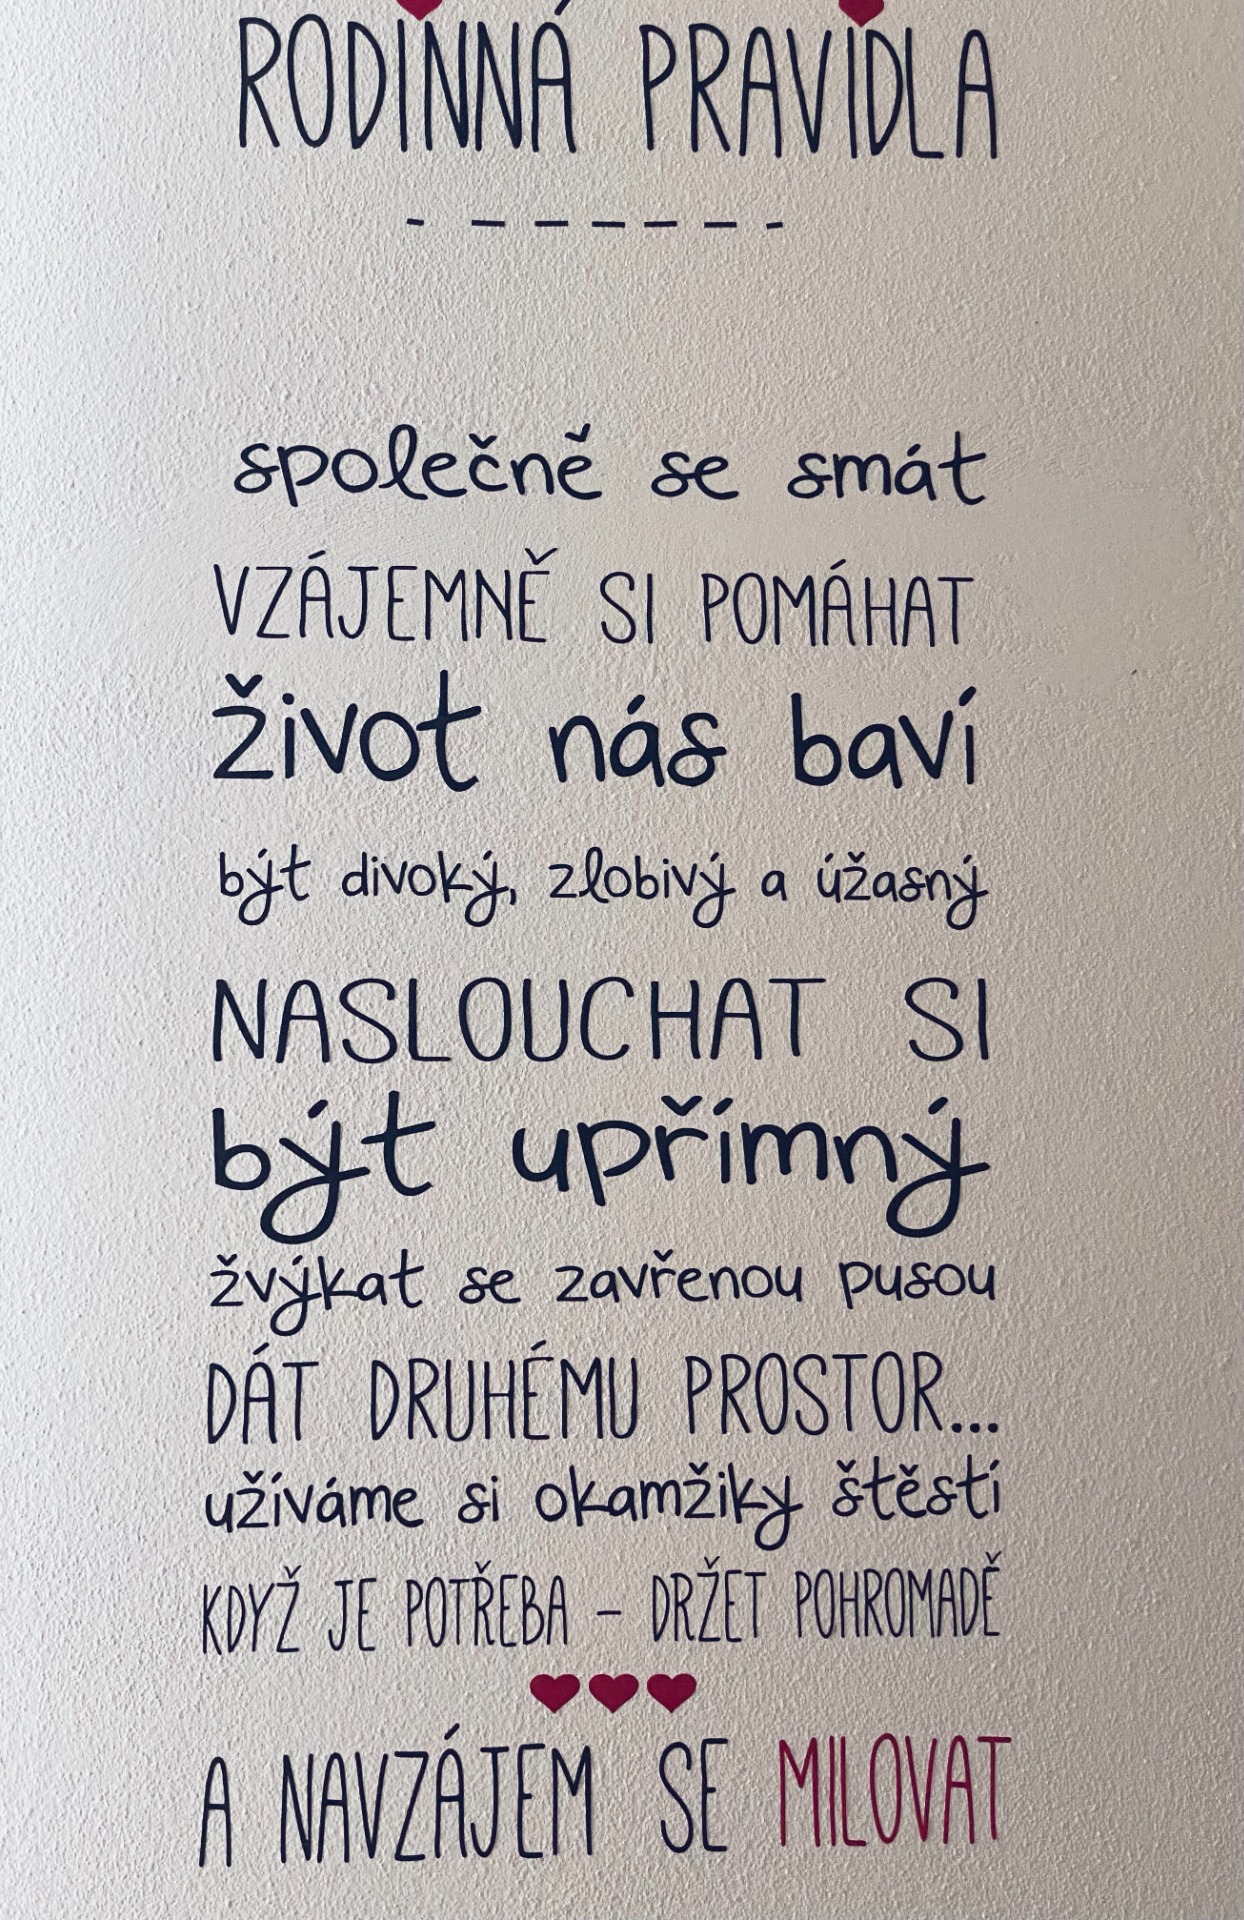 RODINNÁ PRAVIDLA
společně se smát
VZÁJEMNĚ SI POMÁHAT
život nás baví
být divoký, zlobivý a úžasný
NASLOUCHAT SI
být upřímný
žvýkat se zavřenou pusou
DÁT DRUHÉMU PROSTOR...
užíváme si okamžiky štěstí
KDYŽ JE POTŘEBA – DRŽET POHROMADĚ
A NAVZÁJEM SE MILOVAT